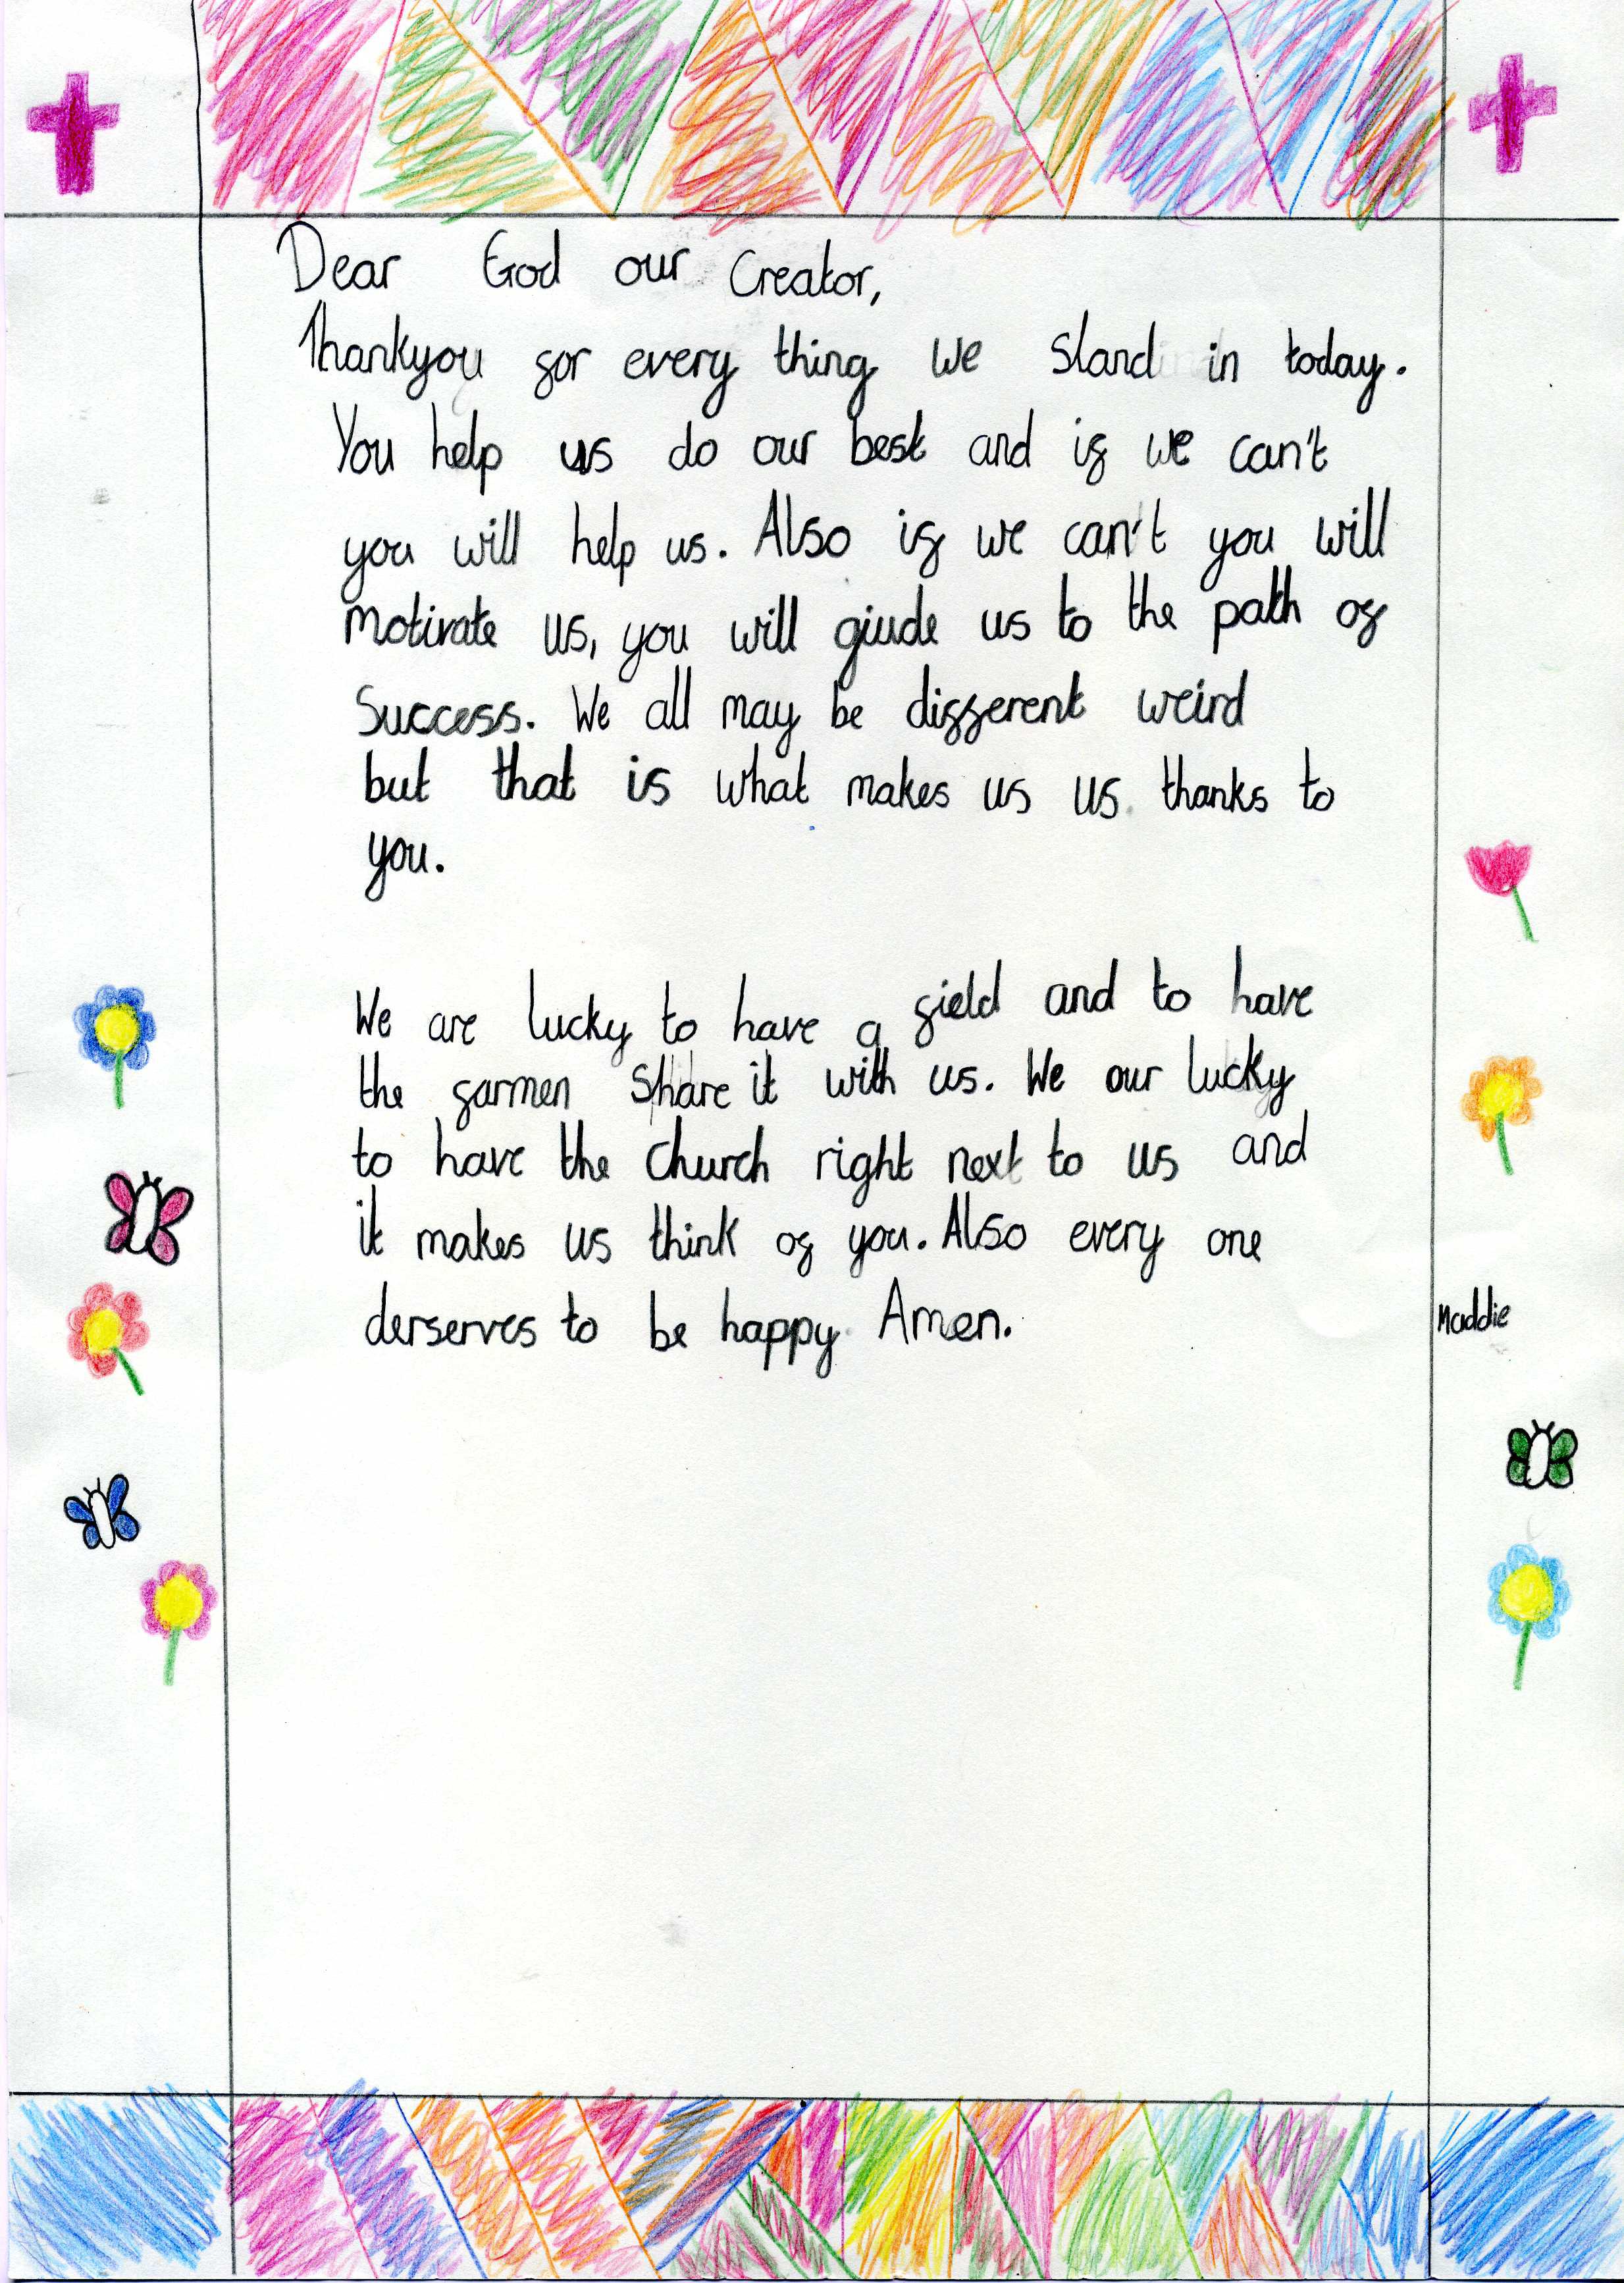 Dear God our Creator,
Thankyou for every thing we stand in today.
You help us do our best and if we can't
you will help us. Also if we can't you will
motivate us, you will giude us to the path of
Success. We all may be different weird
but that is what makes us us thanks to
you.
We are lucky to have a field and to have
the farmen share it with us. We our lucky
to have the church right next to us and
it makes us think of you. Also every one
derserves to be happy Amen.
Maddie